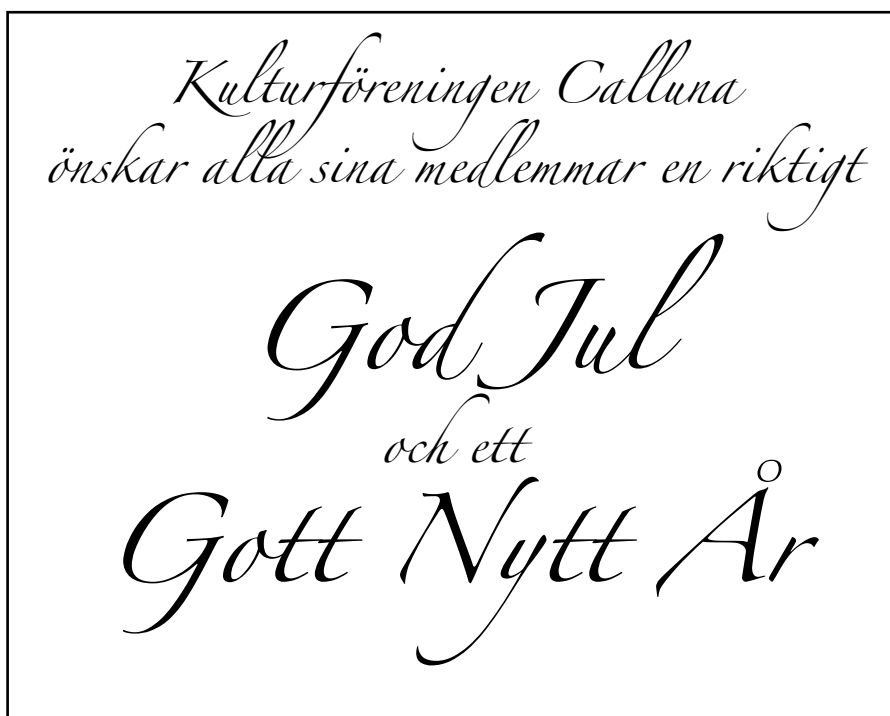 Kulturföreningen Calluna
önskar alla sina medlemmar en riktigt
God Jul
och ett
Gott Nytt År